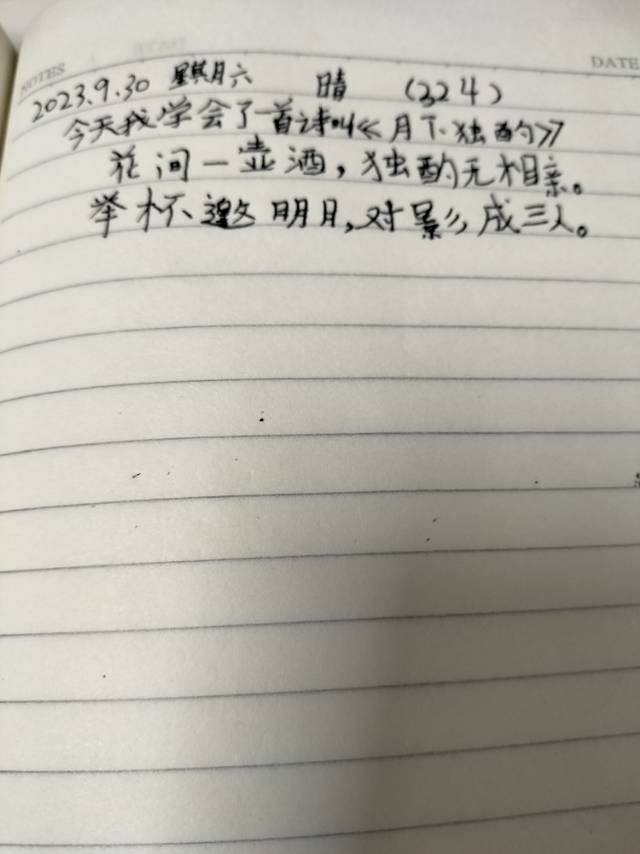 NOTES
DATE
2023.9.30 星期六 晴 (324)
今天我学会了一首诗叫《月下独酌》
花间一壶酒，独酌无相亲。
举杯邀明月，对影成三人。